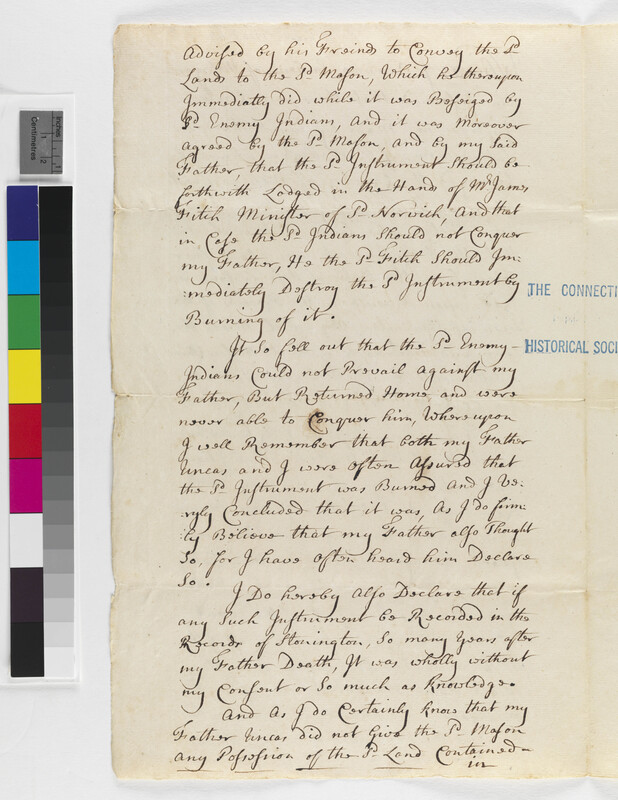 Advised by his Freinds to Convey the Sd
Lands to the Sd Mason, Which he thereupon
Immediatly did while it was Besseiged by
Sd Enemy Indians, And it was Moreover
agreed by the Sd Mason, And by my Said
Father, that the Sd Instrument Should be
forthwith Lodged in the Hands of Mr James
Fitch Minister of Sd Norwich, And that
in Case the Sd Indians Should not Conquer
my Father, He the Sd Fitch Should Im-
:mediately Destroy the Sd Instrument by
Burning of it.
It So fell out that the Sd Enemy-
Indians Could not Prevail against my
Father, But Returned Home and were
never able to Conquer him, Whereupon
I well Remember that both my Father
Uncas and I were often Assured that
the Sd Instrument was Burned And I Ve:
ryly Concluded that it was, As I do firm:
ly Believe that my Father also Thought
So, for I have often heard him Declare
So.
I Do hereby Also Declare that if
any Such Instrument be Recorded in the
Records of Stonington, So many Years after
my Father Death, It was wholly without
my Consent or So much as Knowledge.
And As I do Certainly Know that my
Father Uncas did not Give the Sd Mason
any Possession of the Sd Land Contained-
in
THE CONNECTI
HISTORICAL SOCI
Centimetres
Inches